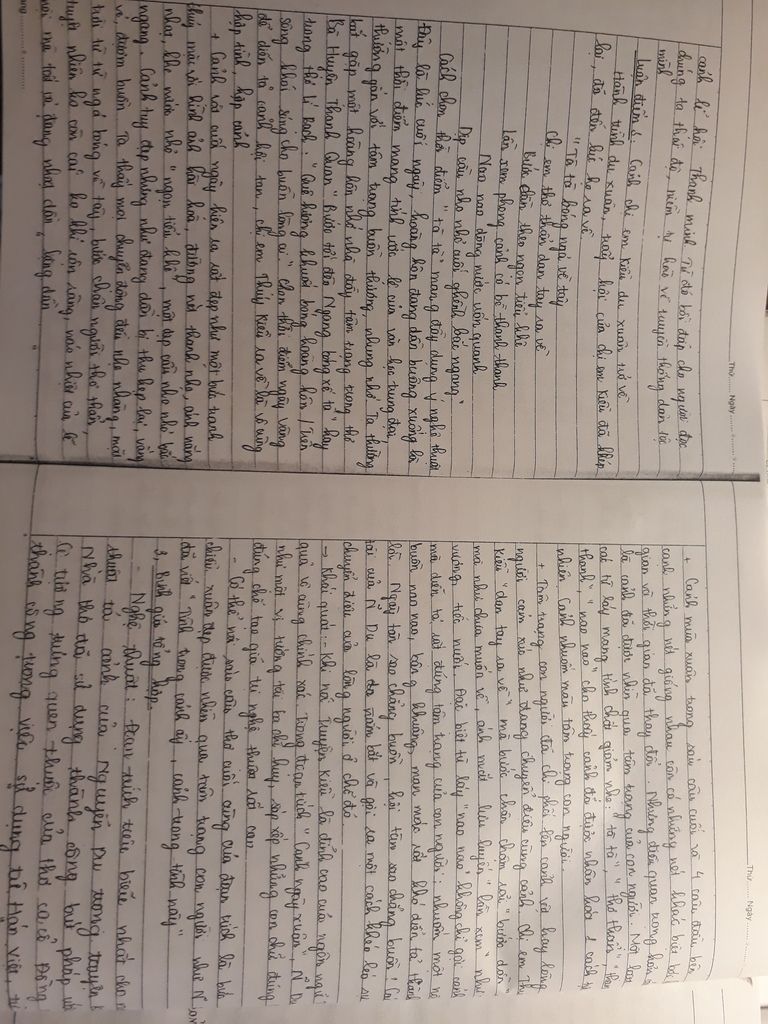 Thứ ...... Ngày ......
cảnh lễ hội Thanh minh. Từ đó khơi dậy cho người đọc
chúng ta thái độ, niềm tự hào về truyền thống dân tộc
mình
Luận điểm 3: Cảnh chị em Kiều du xuân trở về
Hành trình du xuân, trẩy hội của chị em Kiều đã khép
lại, đã đến lúc họ ra về
"Tà tà bóng ngả về tây
Chị em thơ thẩn dan tay ra về
Bước dần theo ngọn tiểu khê
Lần xem phong cảnh có bề thanh thanh
Nao nao dòng nước uốn quanh
Dịp cầu nho nhỏ cuối ghềnh bắc ngang"
Cách chọn thời điểm "tà tà" mang đầy dụng ý nghệ thuật
Đây là lúc cuối ngày, hoàng hôn đang dần buông xuống là
một thời điểm mang tính ước lệ của văn học trung đại,
thường gắn với tâm trạng buồn thương, nhung nhớ. Ta thường
bắt gặp một hoàng hôn nhớ nhà đầy tâm trạng trong thơ
Bà Huyện Thanh Quan "Bước tới đèo Ngang bóng xế tà" hay
trong thơ Lí Bạch: "Quê hương khuất bóng hoàng hôn / Trên
sông khói sóng cho buồn lòng ai" Chọn thời điểm ngày vàng
để diễn tả cảnh hội tan, chị em Thúy Kiều ra về là vô cùng
hợp tình, hợp cảnh
+ Cảnh vật cuối ngày hiện ra rất đẹp như một bức tranh
thủy mặc với hình ảnh hài hoà, đường nét thanh nhẹ, ánh nắng
nhạt, khe nước nhỏ "ngọn tiểu khê", một dịp cầu nho nhỏ bắc
ngang. Cảnh tuy đẹp nhưng như đang dần bị thu hẹp lại, vắng
vẻ, đượm buồn. Ta thấy mọi chuyển động đều nhẹ nhàng, mặt
trời từ từ ngả bóng về tây, bước chân người thơ thẩn,
tuy nhiên ko còn cái ko khí rộn ràng, náo nhiệt của lễ
hội mà tất cả đang nhạt dần, lặng dần.
Thứ ...... Ngày ......
+ Cảnh mùa xuân trong sáu câu cuối và 4 câu đầu bên
cạnh những nét giống nhau còn có những nét khác biệt bởi
gian và thời gian đã thay đổi. Nhưng điều quan trọng hơn
là cảnh đã được nhìn qua tâm trạng của con người. Một loạt
các từ láy mang tính chất giảm nhẹ: "tà tà", "thơ thẩn", "thanh
thanh", "nao nao" cho thấy cảnh đã được nhân hoá 1 cách tự
nhiên. Cảnh nhuốm màu tâm trạng con người
+ Tâm trạng con người đã chi phối lên cảnh vật hay lòng
người cảm xúc như đang chuyển điệu cùng cảnh. Chị em Thúy
Kiều "dan tay ra về" mà bước chân chậm rãi "bước dần"
mà như chưa muốn về, ánh mắt lưu luyến "lần xem" như
vương, tiếc nuối. Đặc biệt từ láy "nao nao" không chỉ gợi cảnh
mà diễn tả rất đúng tâm trạng của con người: nhuốm một nỗi
buồn nao nao, bâng khuâng, man mác rất khó diễn tả thành
lời. Ngày tàn sao chẳng buồn, hội tàn sao chẳng buồn! Cái
tài của N Du là đã nắm bắt và gợi ra một cách khéo léo sự
chuyển điệu của lòng người ở chỗ đó
→ Khái quát: Khi nói Truyện Kiều là đỉnh cao của ngôn ngữ
quả vô cùng chính xác. Trong đoạn trích "Cảnh ngày xuân", N Du
như một vị tướng tài ba chỉ huy, sắp xếp những con chữ đứng
đúng chỗ tạo giá trị nghệ thuật rất cao
- Có thể nói, sáu câu thơ cuối cùng của đoạn trích là bức
chiều xuân đẹp được nhìn qua tâm trạng con người như N
đã viết "Tình trong cảnh ấy, cảnh trong tình này"
3, Đánh giá tổng hợp
- Nghệ thuật: Đoạn trích tiêu biểu nhất cho
thuật tả cảnh của Nguyễn Du trong truyện
Nhà thơ đã sử dụng thành công bút pháp
lệ tượng trưng quen thuộc của thơ ca cổ. Đồng
thành công trong việc sử dụng từ Hán Việt, từ